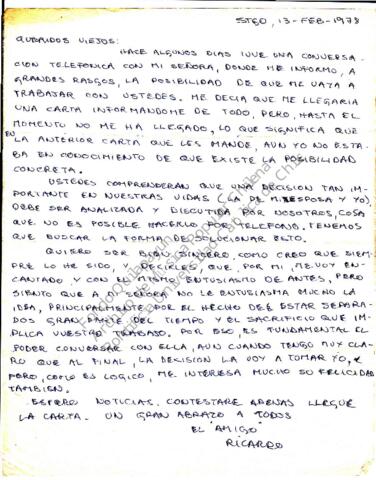 STGO, 13-FEB-1978
QUERIDOS VIEJOS:
HACE ALGUNOS DIAS TUVE UNA CONVERSA
CION TELEFONICA CON MI SEÑORA, DONDE ME INFORMO, A
GRANDES RASGOS, LA POSIBILIDAD DE QUE ME VAYA A
TRABAJAR CON USTEDES. ME DECIA QUE ME LLEGARIA
UNA CARTA INFORMANDOME DE TODO, PERO, HASTA EL
MOMENTO NO ME HA LLEGADO, LO QUE SIGNIFICA QUE
EN LA ANTERIOR CARTA QUE LES MANDE, AUN YO NO ESTA
BA EN CONOCIMIENTO DE QUE EXISTE LA POSIBILIDAD
CONCRETA.
USTEDES COMPRENDERAN QUE UNA DECISION TAN IM
PORTANTE EN NUESTRAS VIDAS (LA DE MI ESPOSA Y YO),
DEBE SER ANALIZADA Y DISCUTIDA POR NOSOTROS, COSA
QUE NO ES POSIBLE HACERLO POR TELEFONO. TENEMOS
QUE BUSCAR LA FORMA DE SOLUCIONAR ESTO.
QUIERO SER BIEN SINCERO, COMO CREO QUE SIEM
PRE LO HE SIDO, Y DECIRLES, QUE, POR MI, ME VOY EN
CANTADO Y CON EL MISMO ENTUSIASMO DE ANTES, PERO
SIENTO QUE A MI SEÑORA NO LE ENTUSIASMA MUCHO LA
IDEA, PRINCIPALMENTE POR EL HECHO DE ESTAR SEPARA
DOS GRAN PARTE DEL TIEMPO Y EL SACRIFICIO QUE IM
PLICA VUESTRO TRABAJO, POR ESO, ES FUNDAMENTAL EL
PODER CONVERSAR CON ELLA, AUN CUANDO TENGO MUY CLA
RO QUE AL FINAL, LA DECISION LA VOY A TOMAR YO,
PERO, COMO ES LOGICO, ME INTERESA MUCHO SU FELICIDAD
TAMBIEN.
ESPERO NOTICIAS. CONTESTARE APENAS LLEGUE
LA CARTA. UN GRAN ABRAZO A TODOS
EL "AMIGO"
RICARDO